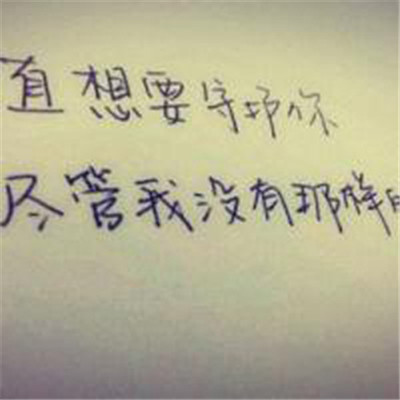 直想要守护你
尽管我没有那样的